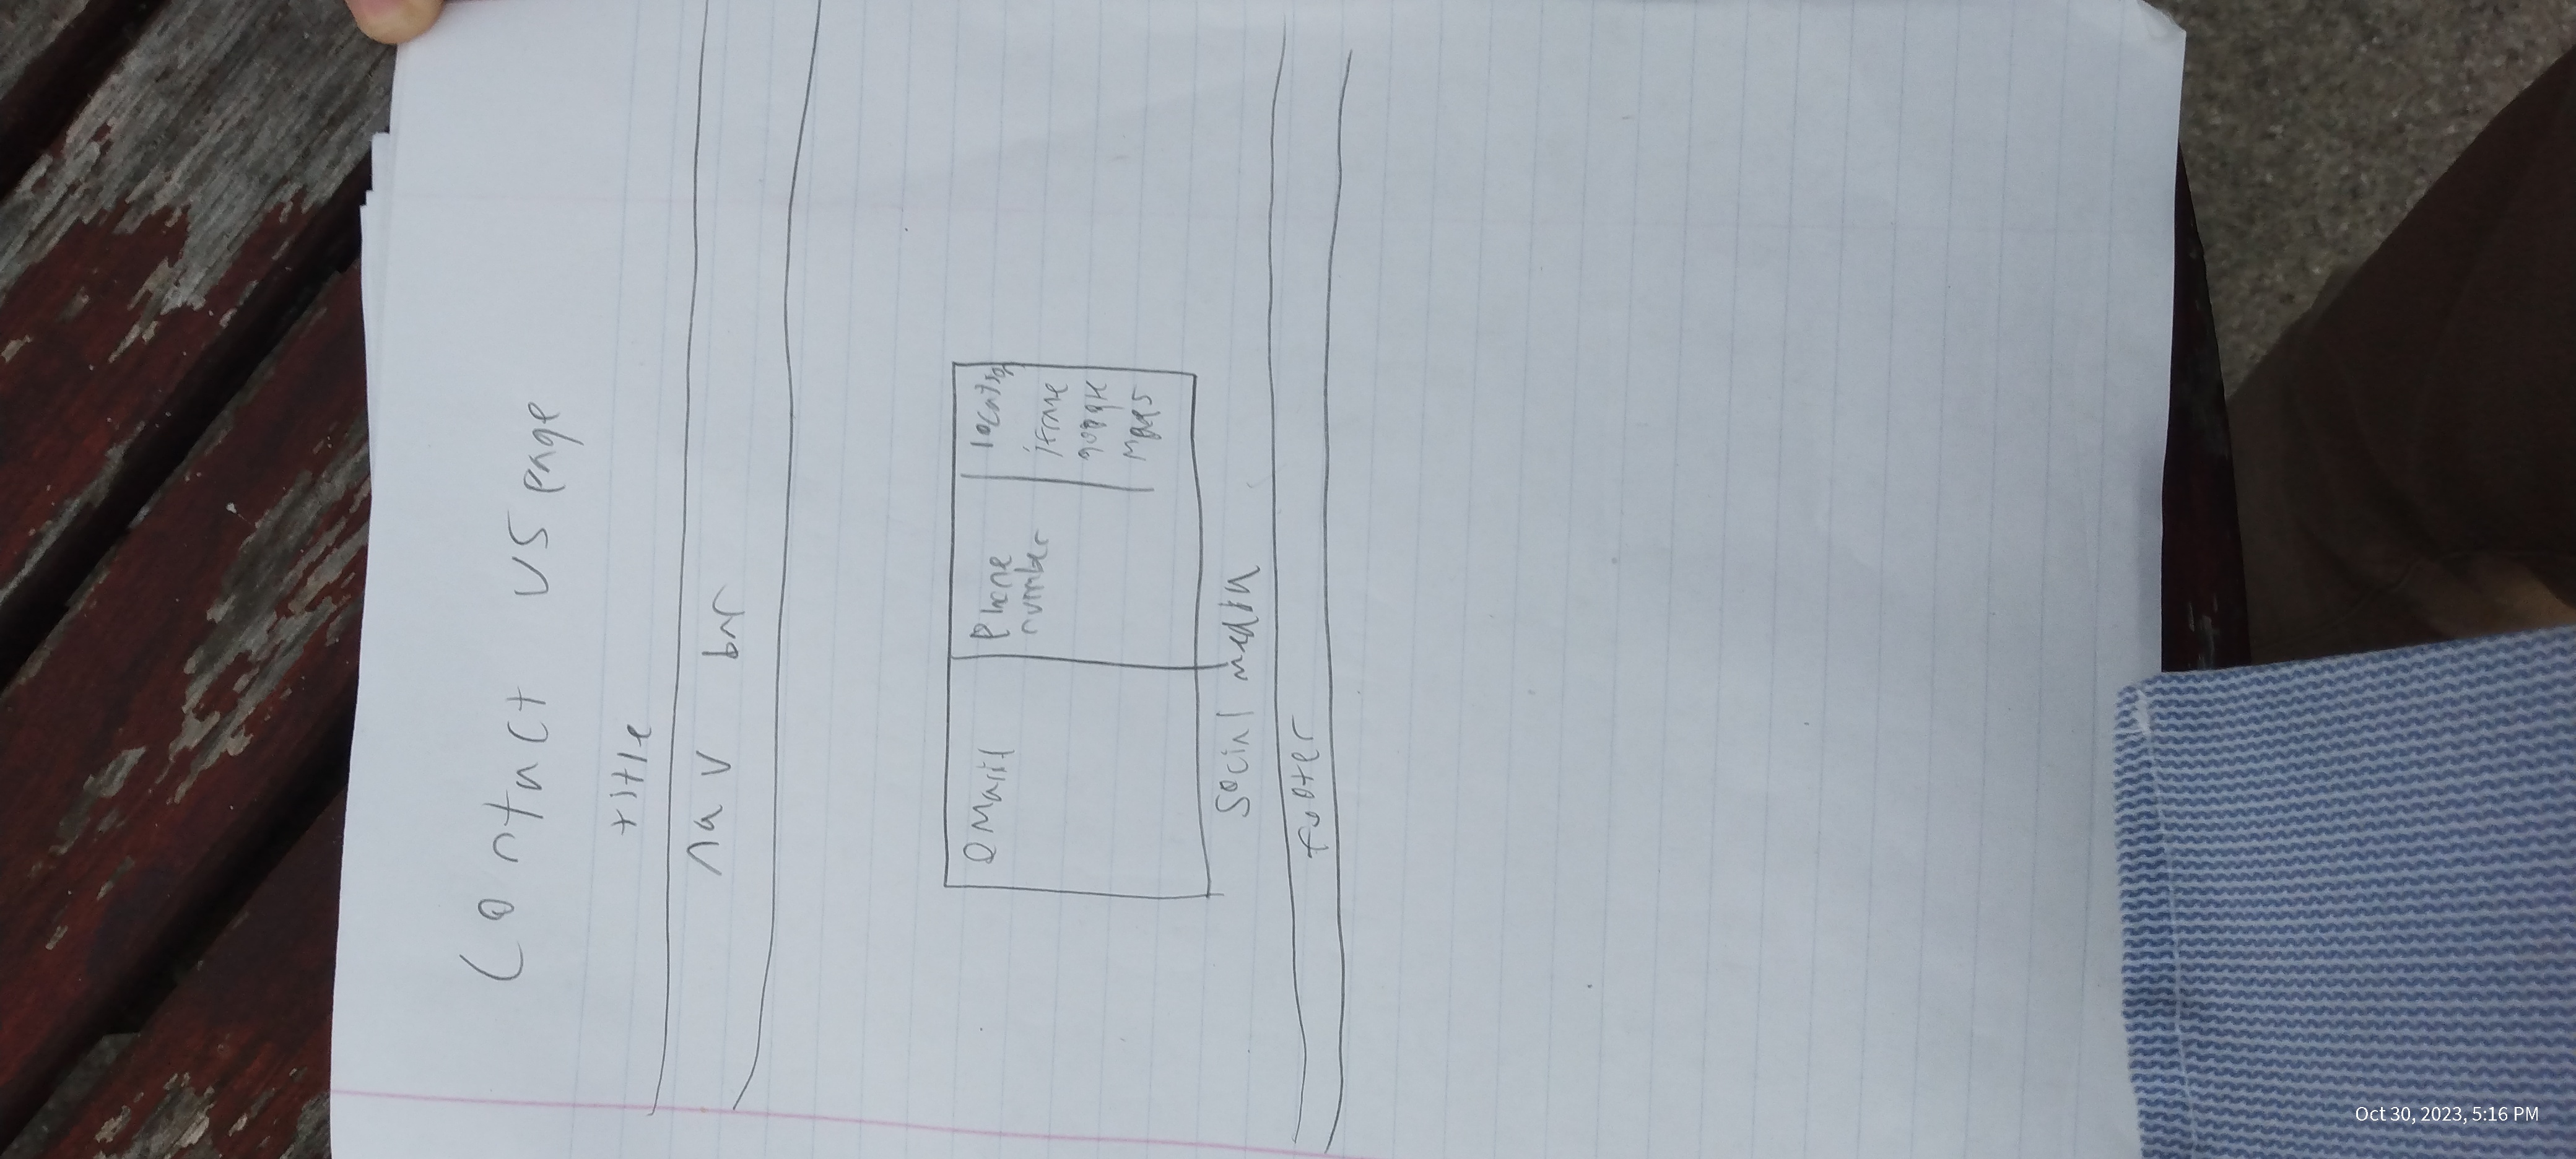 Contact US page
title
nav bar
email
Phone
number
location
iframe
google
maps
social media
footer
Oct 30, 2023, 5:16 PM